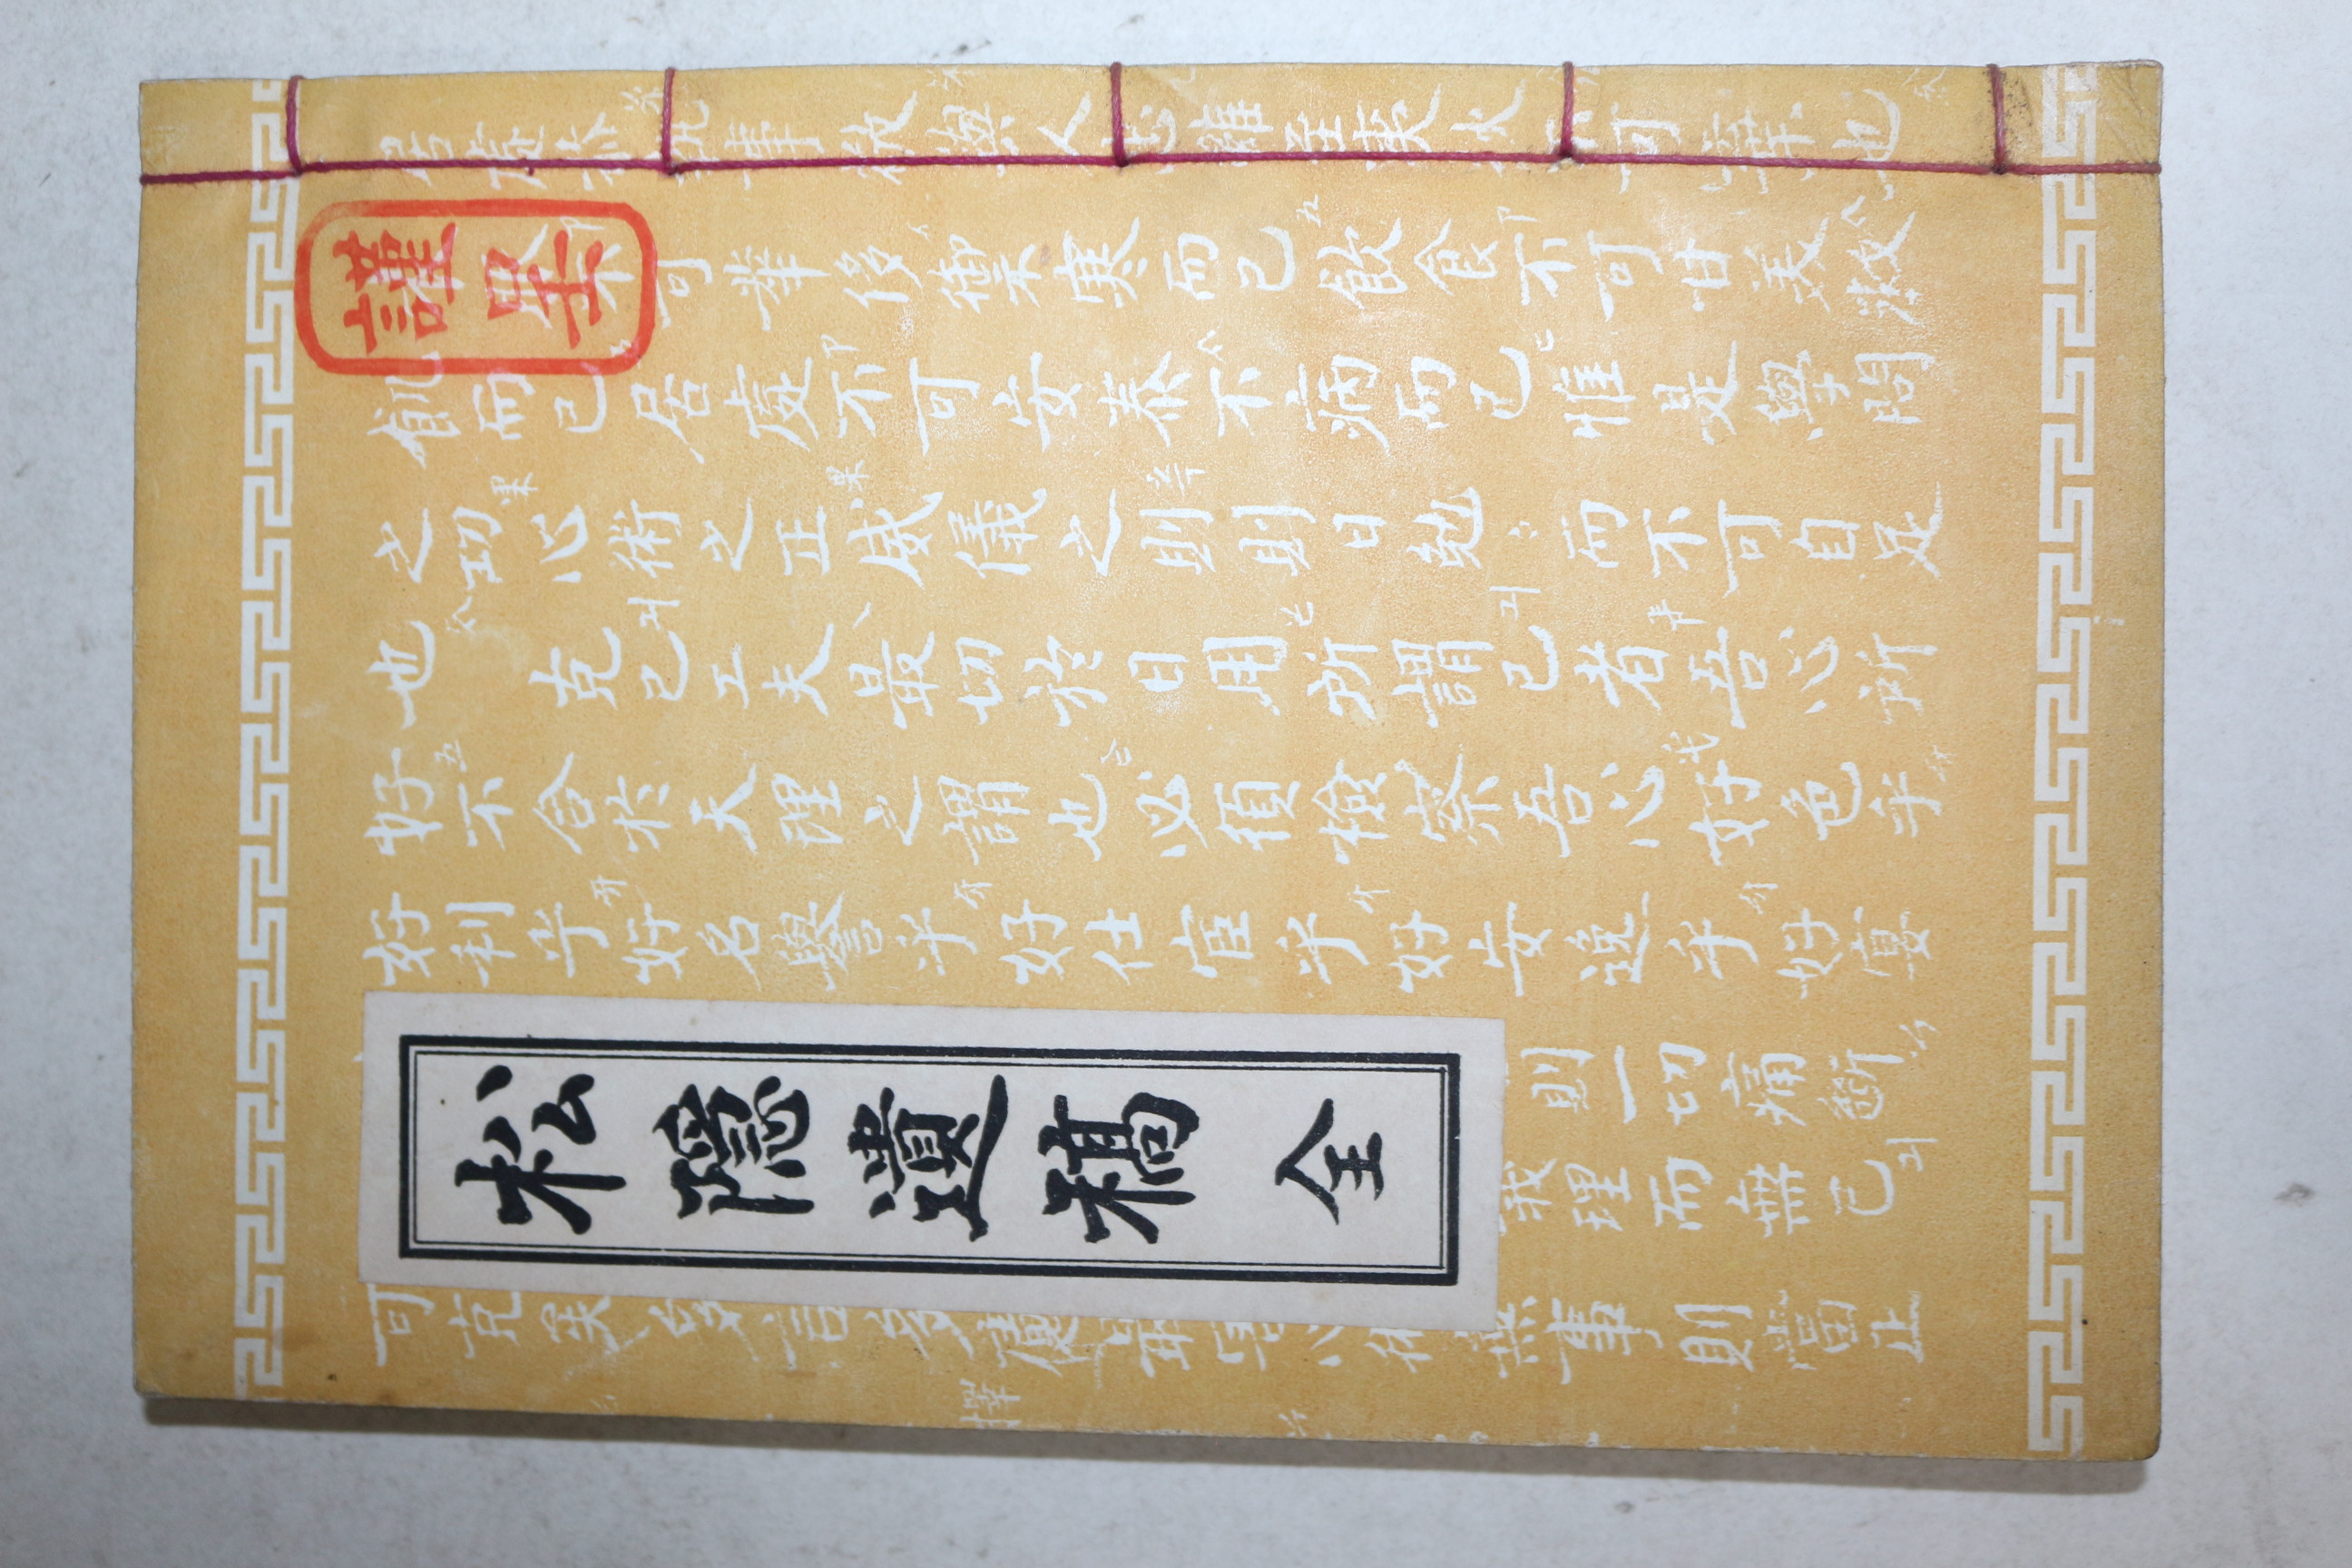 居處恭執事敬與人忠雖至夷狄不可棄也
謹呈
不可華侈御禦寒而已飮食不可甘美救
飢而已居處不可安泰不病而已惟是學問
之功心術之正威儀之則則日勉〻而不可自足
也 克己工夫最切於日用所謂己者吾心所
好不合於天理之謂也必須檢察吾心好色乎
好利乎好名譽乎好仕宦乎好安逸乎好宴
則一切痛斷
義理而無己
松隱遺稿 全
可克矣多言多慮最害心術無事則當正
擇